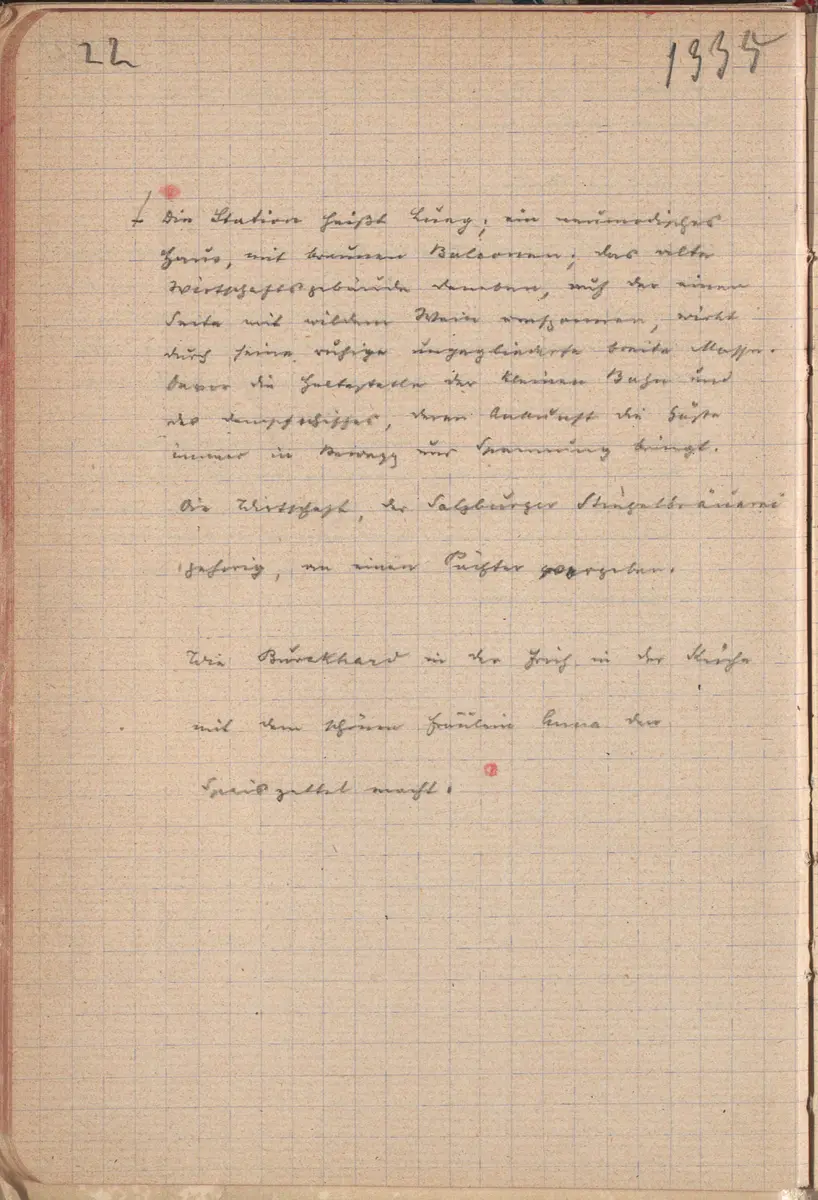 22
1335
Die Station heißt Lueg; ein neumodisches
Haus, mit braunen Balconen; das alte
Wirtschaftsgebäude daneben, auf der einen
Seite mit wildem Wein umsponnen, wirkt
durch seine ruhige ungegliederte breite Masse.
Davor die Haltestelle der kleinen Bahn und
des Dampfschiffes, deren Ankunft die Gäste
immer in und Spannung bringt.
Die Wirtschaft, der Salzburger Stieglbräuerei
gehörig, an einen Pächter vergeben.
Wie Burckhard in der Früh in der Küche
mit dem schönen Fräulein Anna den
Speiszettel macht.